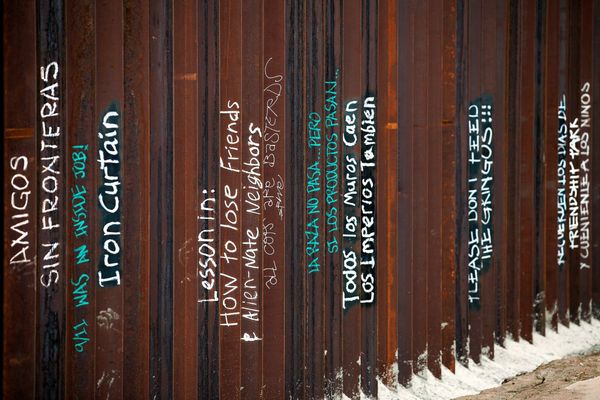 AMIGOS
SIN FRONTERAS
9/11 WAS AN INSIDE JOB!
Iron Curtain
Lesson in:
HOW to lose Friends
& Alien-Nate Neighbors
all cops are BaSTERDS
LA RAZA NO PASA... PERO
SI LOS PRODUCTOS PASAN...
Todos los Muros Caen
Los Imperios Tambien
PLEASE DON'T FEED
THE GRINGOS!!!
RECUERDEN LOS DIAS DE
FRIENDSHIP PARK
Y CUENTENLE A LOS NINOS